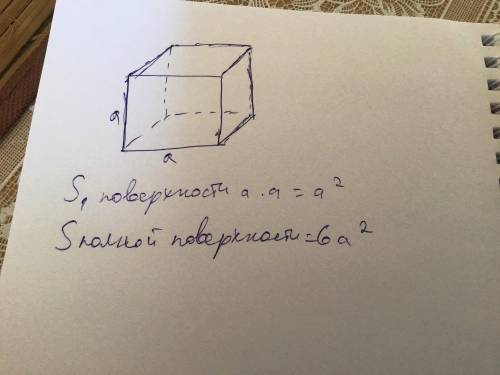 a
a
S₁ поверхности a · a = a²
S полной поверхности = 6a²